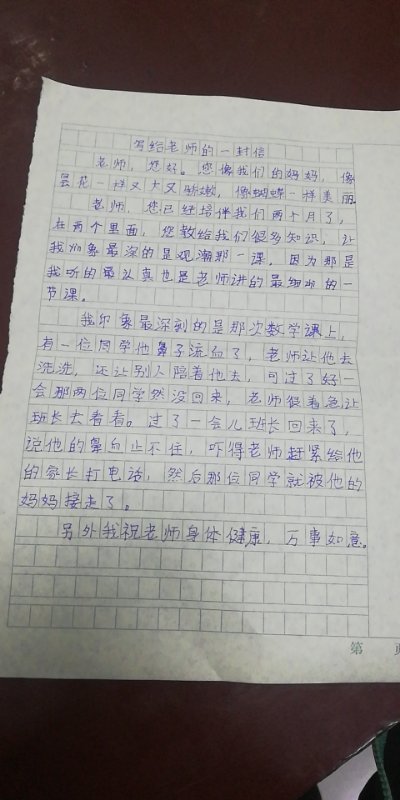 写给老师的一封信
老师，您好。您像我们的妈妈，像
昙花一样又大又娇嫩，像蝴蝶一样美丽
老师，您已经培伴我们两个月了，
在两个里面，您教给我们很多知识，让
我印象最深的是观潮那一课，因为那是
我听的最认真也是老师讲的最细心的一
节课。
我印象最深刻的是那次数学课上，
有一位同学他鼻子流血了，老师让他去
洗洗，还让别人陪着他去，可过了好一
会那两位同学然没回来，老师很着急让
班长去看看。过了一会儿班长回来了，
说他的鼻血止不住，吓得老师赶紧给他
的家长打电话，然后那位同学就被他的
妈妈接走了。
另外我祝老师身体健康，万事如意。
第 页